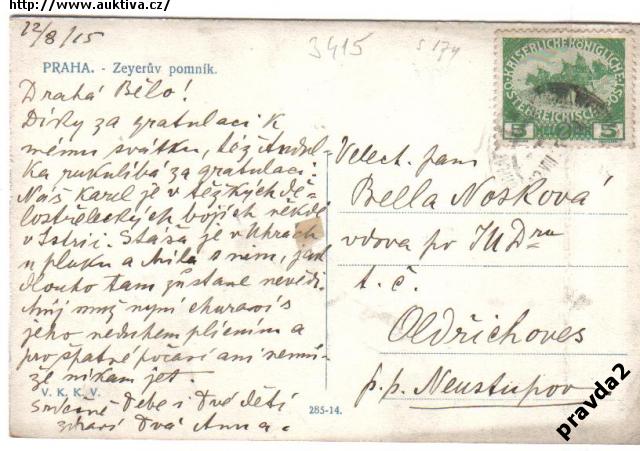 http://www.auktiva.cz/
12/8/15
3415
s 174
PRAHA. - Zeyerův pomník.
Drahá Bělo!
Díky za gratulaci k
mému svátku, též Andul-
ka rukulíbá za gratulaci.
Náš Karel je v těžkých dě-
lostřeleckých bojích někde
v Istrii. Stáša je v Uhrách
u pluku a Míla s ním, jak
dlouho tam zůstane neví.
Můj muž nyní churaví s
jeho neduhem plicním a
pro špatné počasí ani nemů-
že nikam jet.
Srdečně Tebe i Tvé děti
zdraví Tvá Anna.
V. K. K. V.
285-14.
KAISERLICHE KÖNIGLICHE
ÖSTERREICHISCHE
5 5
Velect. paní
Bella Nosková
vdova po JUDru
t. č.
Oldřichovec
p. p. Neustupov
pravda2